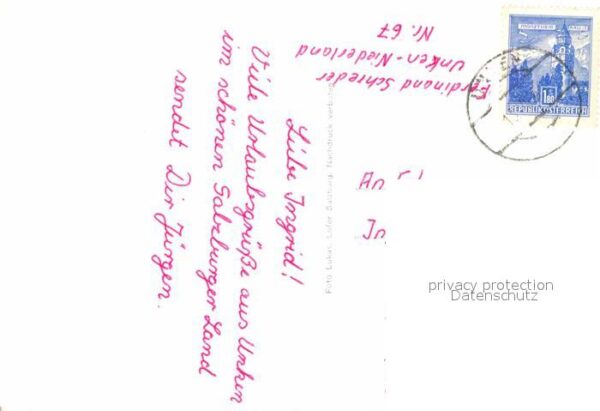 Liebe Ingrid!
Viele Urlaubsgrüße aus Unken
im schönen Salzburger Land
sendet Dir Jürgen.
Ferdinand Schreder
Unken-Niederland
Nr. 67
Foto Lukas, Lofer Salzburg, Nachdruck verboten
An
In
1.80
REPUBLIK ÖSTERREICH
privacy protection
Datenschutz